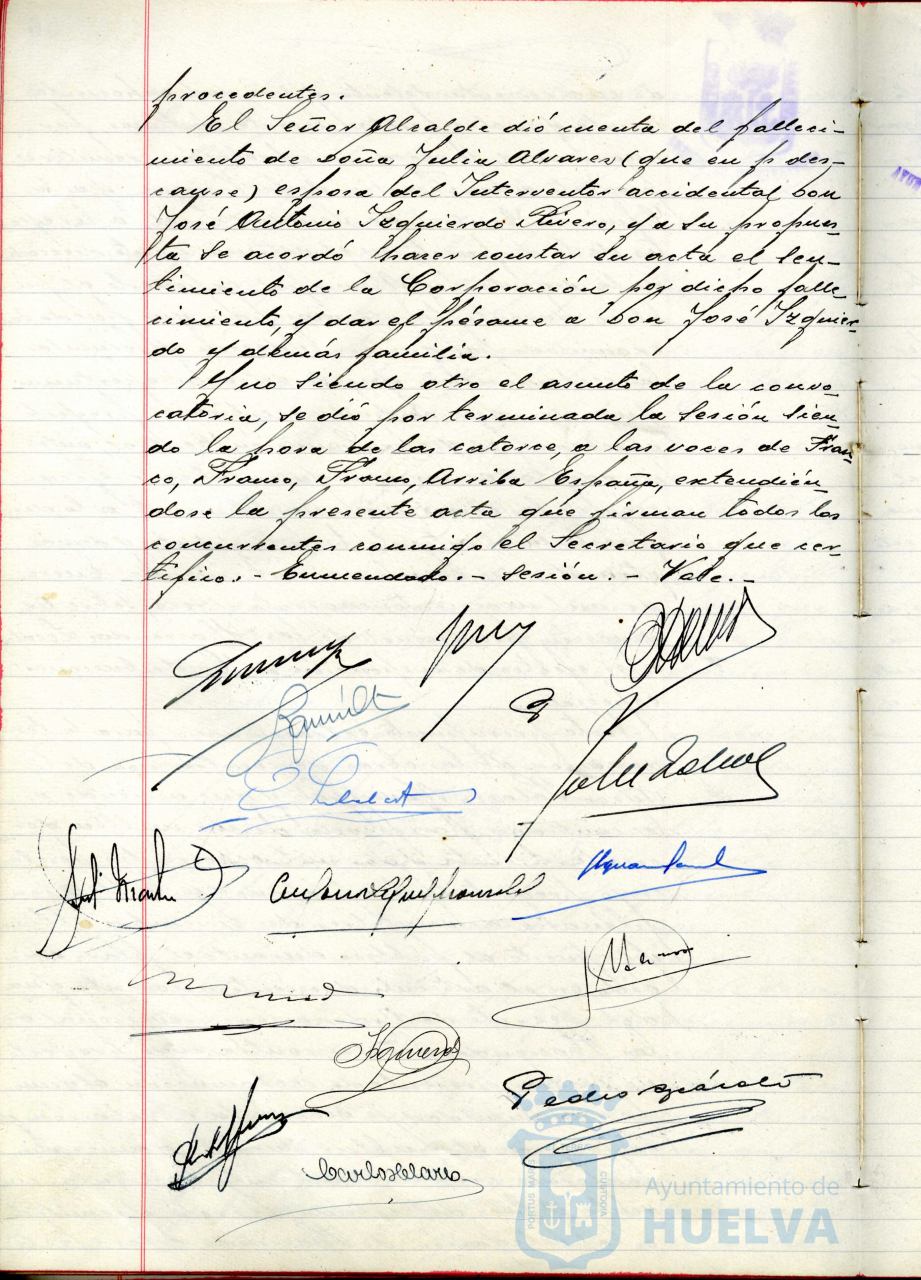 procedentes.
El Señor Alcalde dió cuenta del falleci-
miento de doña Julia Alvarez (que en p. des-
canse) esposa del Interventor accidental don
José Antonio Izquierdo Rivero, y a su propues-
ta se acordó hacer constar en acta el sen-
timiento de la Corporación por dicho falle-
cimiento, y dar el pésame a don José Izquier-
do y demás familia.
Y no siendo otro el asunto de la convo-
catoria, se dió por terminada la sesión sien-
do la hora de las catorce, a las voces de Fran-
co, Franco, Franco, Arriba España, extendién-
dose la presente acta que firman todos los
concurrentes conmigo el Secretario que cer-
tifico.- Enmendado.- sesión.- Vale.-
Izquierdo
Pedro
Carlos
PORTUS MARIS
CUSTODIA
Ayuntamiento de
HUELVA